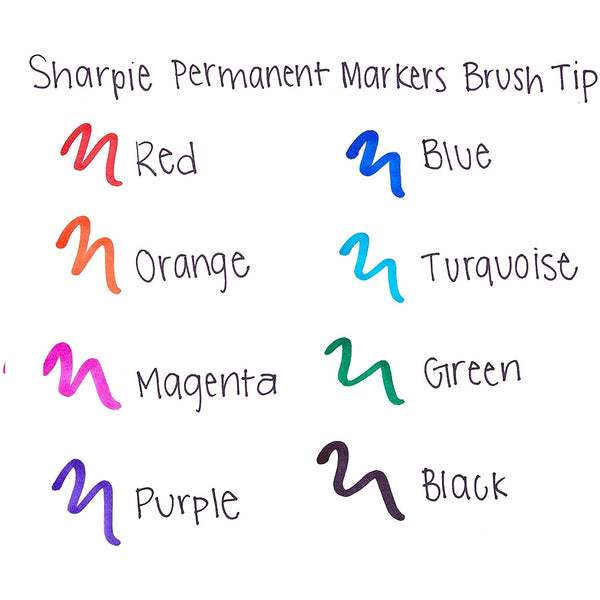 Sharpie Permanent Markers Brush Tip
Red
Orange
Magenta
Purple
Blue
Turquoise
Green
Black